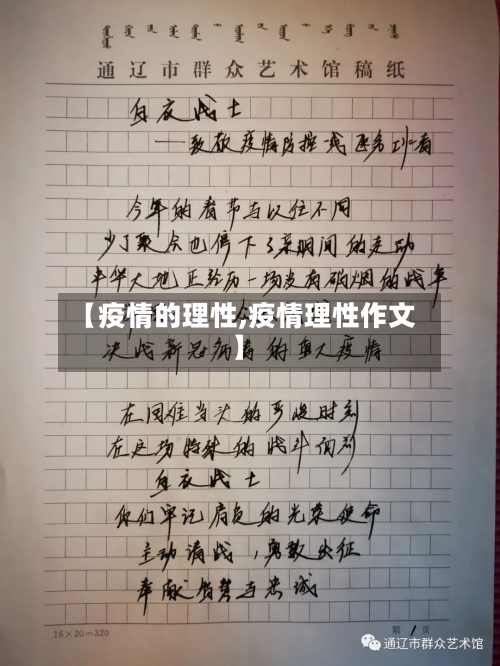 通辽市群众艺术馆稿纸
白衣战士
——致敬疫情防控一线医务工作者
今年的春节与以往不同
少了聚会也停下了亲朋间的走动
中华大地正经历一场没有硝烟的战争
【疫情的理性,疫情理性作文
】
决战新冠病毒的重大疫情
在困难当头的严峻时刻
在这场特殊的战斗面前
白衣战士
你们牢记肩负的光荣使命
主动请战，勇敢出征
奉献智慧与忠诚
16×20=320
第1页
通辽市群众艺术馆